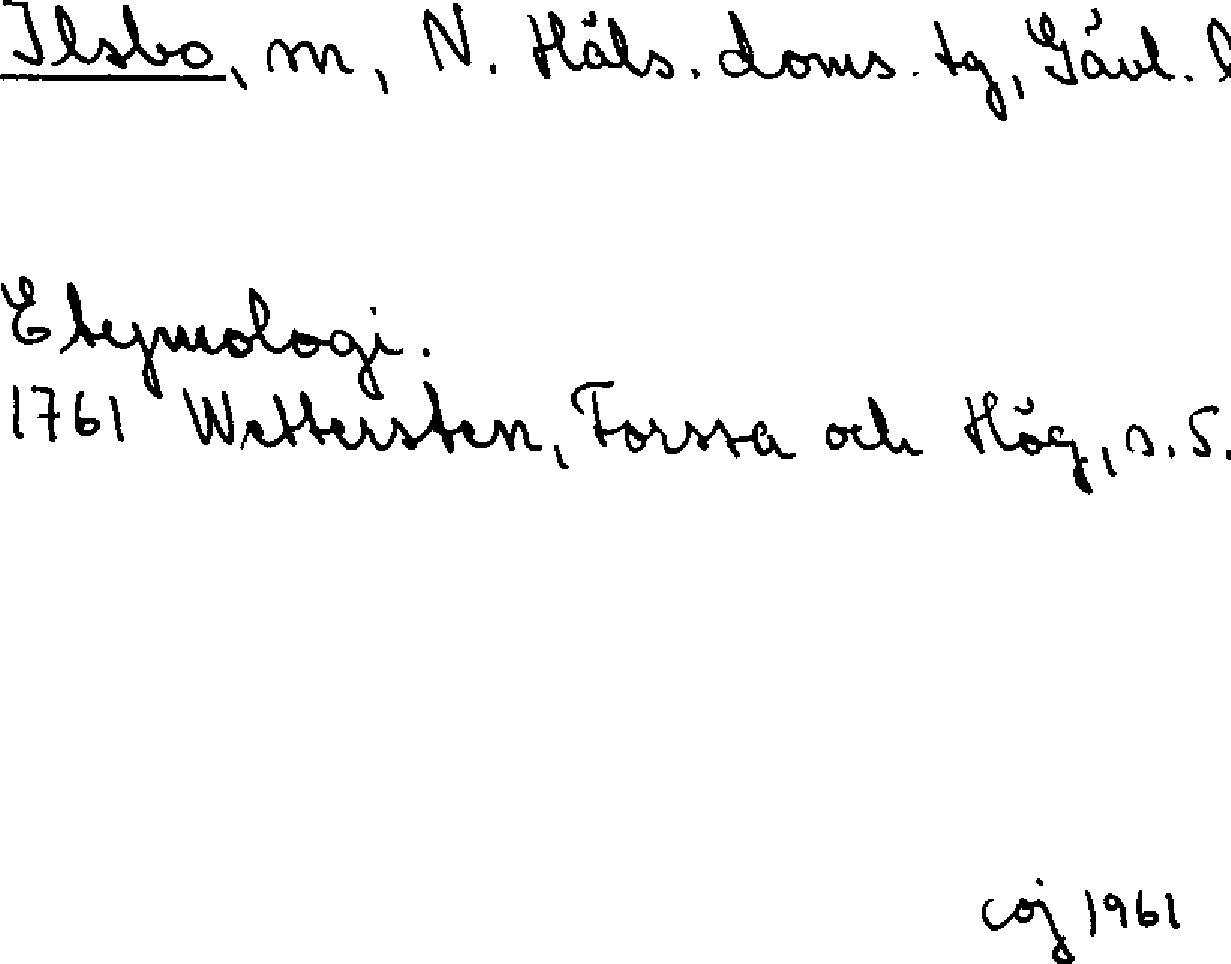 Ilsbo, m, N. Häls. doms. tg, Gävl. l
Etymologi.
1761 Wettersten, Forssa och Hög, s. 5.
coj 1961